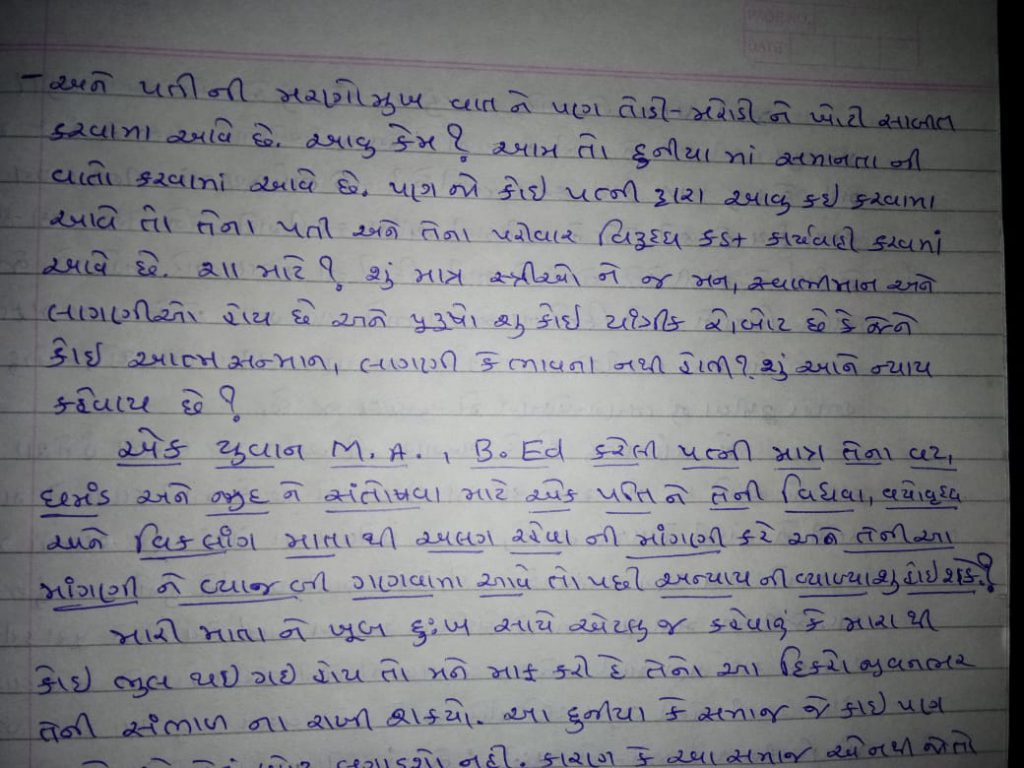 PAGE NO.
DATE
- અને પતીની મરણોમુખ વાત ને પણ તોડી-મરોડી ને ખોટી સાબીત
કરવામા આવે છે. આવુ કેમ? આમ તો દુનીયા માં સમાનતા ની
વાતો કરવામાં આવે છે. પણ જો કોઇ પત્ની દ્વારા આવુ કઇ કરવામા
આવે તો તેના પતી અને તેના પરીવાર વિરુધ્ધ કડક કાર્યવાહી કરવામાં
આવે છે. શા માટે? શું માત્ર સ્ત્રીઓ ને જ મન, સ્વાભીમાન અને
લાગણીઓ હોય છે અને પુરૂષો શુ કોઇ યાંત્રીક રોબોટ છે કે જેને
કોઇ આત્મસન્માન, લાગણી કે ભાવના નથી હોતી? શું આને ન્યાય
કહેવાય છે?
એક યુવાન M.A., B.Ed કરેલી પત્ની માત્ર તેના વટ,
ઘમંડ અને જીદ ને સંતોષવા માટે એક પતિ ને તેની વિધવા, વયોવૃધ્ધ
અને વિકલાંગ માતા થી અલગ રહેવા ની માંગણી કરે અને તેની આ
માંગણી ને વ્યાજબી ગણવામા આવે તો પછી અન્યાય ની વ્યાખ્યા શુ હોઇ શકે.?
મારી માતા ને ખૂબ દુ:ખ સાથે એટલુ જ કહેવાનું કે મારા થી
કોઇ ભુલ થઇ ગઇ હોય તો મને માફ કરી દે તેનો આ દિકરો જીવનભર
તેની સંભાળ ના રાખી શકયો. આ દુનીયા કે સમાજ જે કાઇ પણ
નહી. કારણ કે આ સમાજ